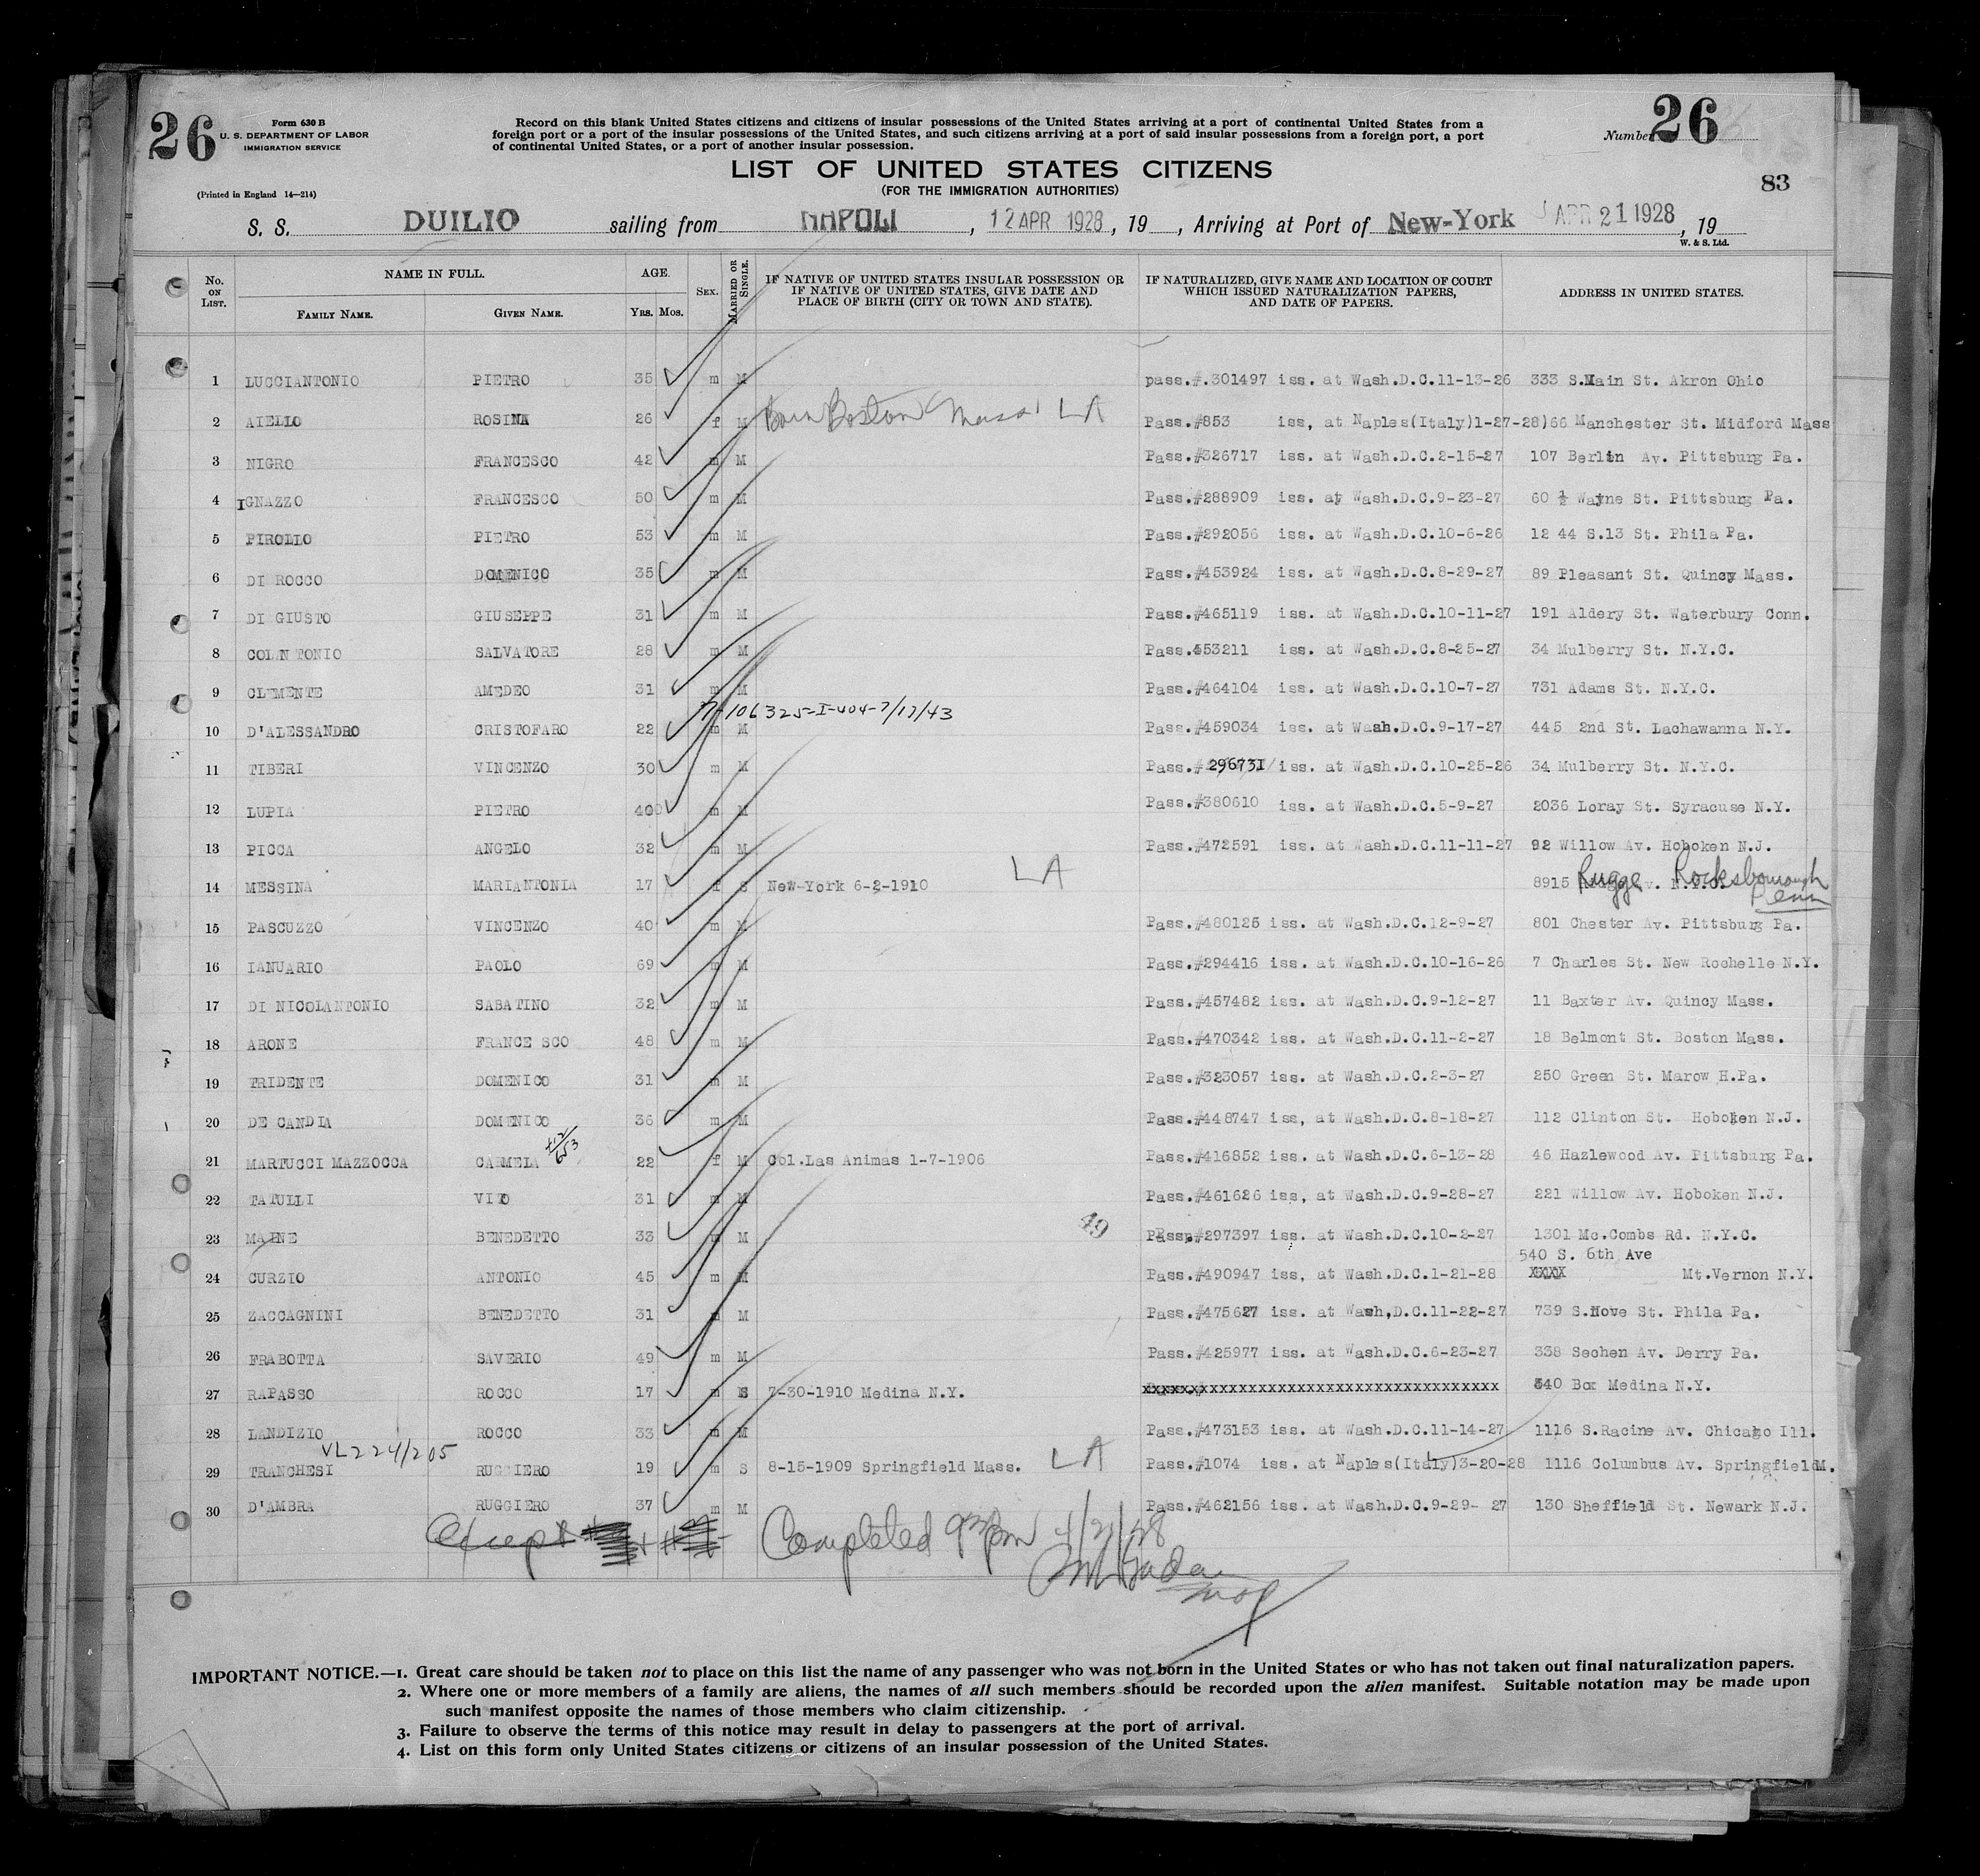 26
Form 630 B
U. S. DEPARTMENT OF LABOR
IMMIGRATION SERVICE
(Printed in England 14—214)
Record on this blank United States citizens and citizens of insular possessions of the United States arriving at a port of continental United States from a
foreign port or a port of the insular possessions of the United States, and such citizens arriving at a port of said insular possessions from a foreign port, a port
of continental United States, or a port of another insular possession.
LIST OF UNITED STATES CITIZENS
(FOR THE IMMIGRATION AUTHORITIES)
Number 26
83
S. S. DUILIO sailing from NAPOLI, 12 APR 1928, 19 , Arriving at Port of New-York APR 21 1928, 19
W. & S. Ltd.
No. ON LIST. NAME IN FULL. FAMILY NAME. GIVEN NAME. AGE. YRS. MOS. SEX. MARRIED OR SINGLE. IF NATIVE OF UNITED STATES INSULAR POSSESSION OR IF NATIVE OF UNITED STATES, GIVE DATE AND PLACE OF BIRTH (CITY OR TOWN AND STATE). IF NATURALIZED, GIVE NAME AND LOCATION OF COURT WHICH ISSUED NATURALIZATION PAPERS, AND DATE OF PAPERS. ADDRESS IN UNITED STATES.
1 LUCCIANTONIO PIETRO 35 m M pass.#.301497 iss. at Wash.D.C.11-13-26 333 S.Main St. Akron Ohio
2 AIELLO ROSINA 26 f M Born Boston Mass LA Pass.#853 iss, at Naples(Italy)1-27-28)66 Manchester St. Midford Mass
3 NIGRO FRANCESCO 42 m M Pass.#326717 iss. at Wash.D.C.2-15-27 107 Berlin Av. Pittsburg Pa.
4 IGNAZZO FRANCESCO 50 m M Pass.#288909 iss. at Wash.D.C.9-23-27 60 ½ Wayne St. Pittsburg Pa.
5 PIROLLO PIETRO 53 m M Pass.#292056 iss. at Wash.D.C.10-6-26 12 44 S.13 St. Phila Pa.
6 DI ROCCO DOMENICO 35 m M Pass.#453924 iss. at Wash.D.C.8-29-27 89 Pleasant St. Quincy Mass.
7 DI GIUSTO GIUSEPPE 31 m M Pass.#465119 iss. at Wash.D.C.10-11-27 191 Aldery St. Waterbury Conn.
8 COLANTONIO SALVATORE 28 m M Pass.453211 iss. at Wash.D.C.8-25-27 34 Mulberry St. N.Y.C.
9 CLEMENTE AMEDEO 31 m M Pass.#464104 iss. at Wash.D.C.10-7-27 731 Adams St. N.Y.C.
7-106325-I-404-7/17/43
10 D'ALESSANDRO CRISTOFARO 22 m M Pass.#459034 iss. at Wash.D.C.9-17-27 445 2nd St. Lachawanna N.Y.
11 TIBERI VINCENZO 30 m M Pass.#296731 iss. at Wash.D.C.10-25-26 34 Mulberry St. N.Y.C.
12 LUPIA PIETRO 40 m M Pass.#380610 iss. at Wash.D.C.5-9-27 2036 Loray St. Syracuse N.Y.
13 PICCA ANGELO 32 m M Pass.#472591 iss. at Wash.D.C.11-11-27 92 Willow Av. Hoboken N.J.
14 MESSINA MARIANTONIA 17 f S New-York 6-2-1910 LA 8915 Rugge Av. N.Y.C. Rocksborough Penn
15 PASCUZZO VINCENZO 40 m M Pass.#480125 iss. at Wash.D.C.12-9-27 801 Chester Av. Pittsburg Pa.
16 IANUARIO PAOLO 69 m M Pass.#294416 iss. at Wash.D.C.10-16-26 7 Charles St. New Rochelle N.Y.
17 DI NICOLANTONIO SABATINO 32 m M Pass.#457482 iss. at Wash.D.C.9-12-27 11 Baxter Av. Quincy Mass.
18 ARONE FRANCE SCO 48 m M Pass.#470342 iss. at Wash.D.C.11-2-27 18 Belmont St. Boston Mass.
19 TRIDENTE DOMENICO 31 m M Pass.#323057 iss. at Wash.D.C.2-3-27 250 Green St. Marow H.Pa.
20 DE CANDIA DOMENICO 36 m M Pass.#448747 iss, at Wash.D.C.8-18-27 112 Clinton St. Hoboken N.J.
21 MARTUCCI MAZZOCCA CARMELA 22 f M Col.Las Animas 1-7-1906 Pass.#416852 iss. at Wash.D.C.6-13-28 46 Hazlewood Av. Pittsburg Pa.
22 TATULLI VITO 31 m M Pass.#461626 iss, at Wash.D.C.9-28-27 221 Willow Av. Hoboken N.J.
49
23 MAINE BENEDETTO 33 m M Pass.#297397 iss. at Wash.D.C.10-2-27 1301 Mc.Combs Rd. N.Y.C.
540 S. 6th Ave
24 CURZIO ANTONIO 45 m M Pass.#490947 iss, at Wash.D.C.1-21-28 XXXX Mt.Vernon N.Y.
25 ZACCAGNINI BENEDETTO 31 m M Pass.#475627 iss. at Wash,D.C.11-22-27 739 S.Hove St. Phila Pa.
26 FRABOTTA SAVERIO 49 m M Pass.#425977 iss. at Wash.D.C.6-23-27 338 Sechen Av. Derry Pa.
27 RAPASSO ROCCO 17 m S 7-30-1910 Medina N.Y. xxxxxxxxxxxxxxxxxxxxxxxxxxxxxxxxxxx 340 Box Medina N.Y.
28 LANDIZIO ROCCO 33 m M Pass.#473153 iss. at Wash.D.C.11-14-27 1116 S.Racine Av. Chicago Ill.
VL224/205
29 TRANCHESI RUGGIERO 19 m S 8-15-1909 Springfield Mass. LA Pass.#1074 iss. at Naples(Italy)3-20-28 1116 Columbus Av. SpringfieldM.
30 D'AMBRA RUGGIERO 37 m M Pass.#462156 iss. at Wash.D.C.9-29- 27 130 Sheffield St. Newark N.J.
Except Completed 9 pm 4/21/28
IMPORTANT NOTICE.—1. Great care should be taken not to place on this list the name of any passenger who was not born in the United States or who has not taken out final naturalization papers.
2. Where one or more members of a family are aliens, the names of all such members should be recorded upon the alien manifest. Suitable notation may be made upon
such manifest opposite the names of those members who claim citizenship.
3. Failure to observe the terms of this notice may result in delay to passengers at the port of arrival.
4. List on this form only United States citizens or citizens of an insular possession of the United States.